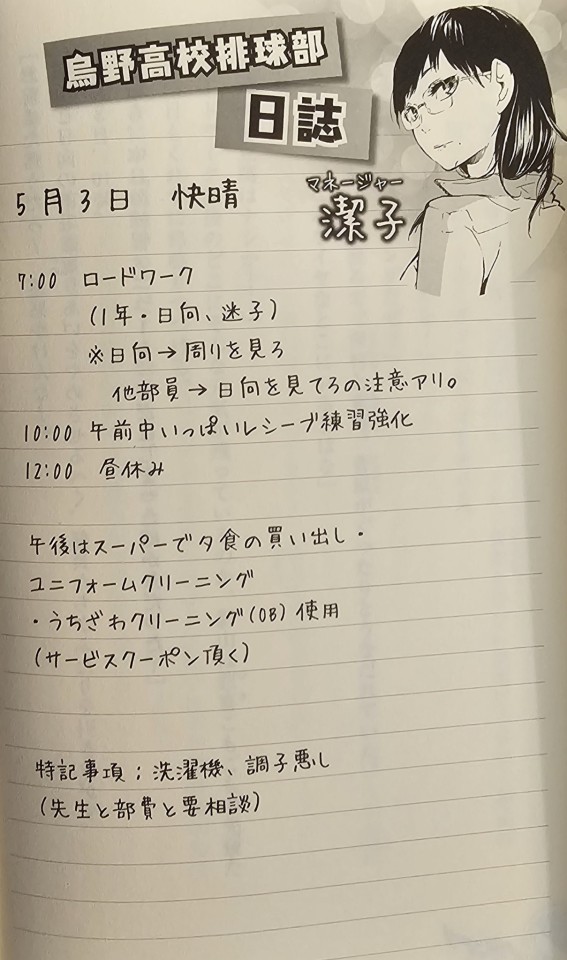 烏野高校排球部
日誌
マネージャー
潔子
5月3日 快晴
7:00 ロードワーク
(1年・日向、迷子)
※日向→周りを見ろ
他部員→日向を見てろの注意アリ。
10:00 午前中いっぱいレシーブ練習強化
12:00 昼休み
午後はスーパーで夕食の買い出し・
ユニフォームクリーニング
・うちざわクリーニング(OB)使用
(サービスクーポン頂く)
特記事項;洗濯機、調子悪し
(先生と部費と要相談)